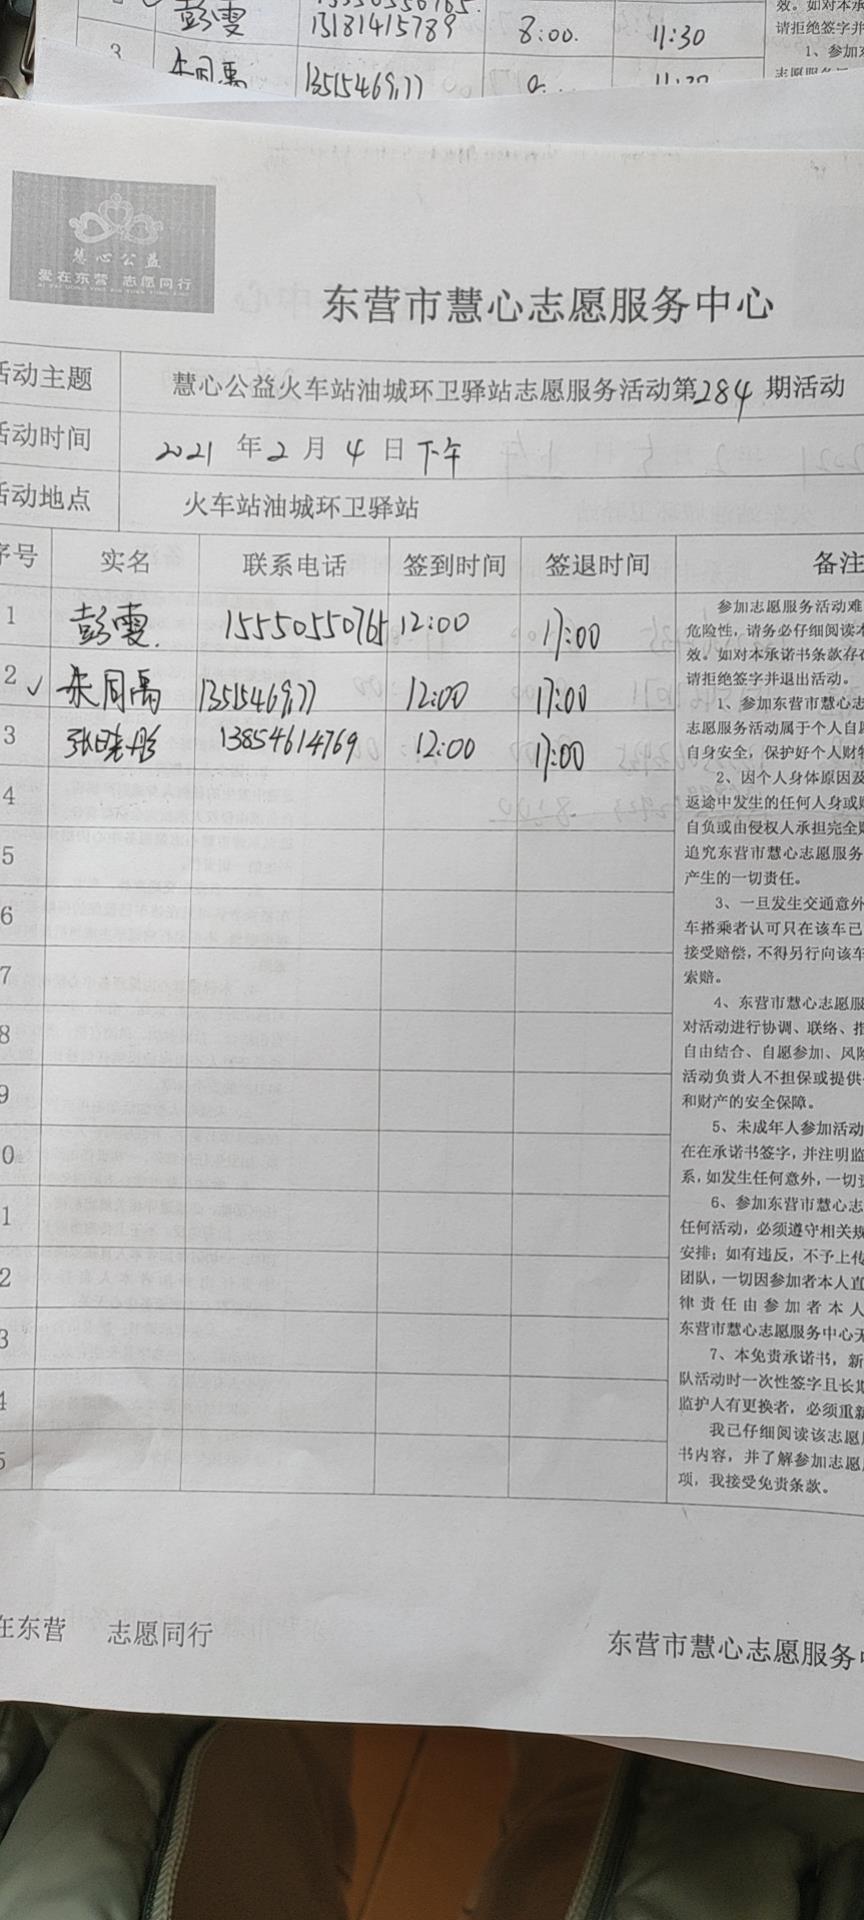 彭雯 13181415789 8:00. 11:30
3
效。如对本承
请拒绝签字并
1、参加东
慧心公益
爱在东营 志愿同行
东营市慧心志愿服务中心
活动主题 慧心公益火车站油城环卫驿站志愿服务活动第284期活动
活动时间 2021年2月4日下午
活动地点 火车站油城环卫驿站
序号 实名 联系电话 签到时间 签退时间 备注
1 彭雯. 15550550765 12:00 17:00
2 ✓ 12:00 17:00
3 张晓彤 13854614769 12:00 17:00
4
5
6
7
8
9
0
1
2
3
4
5
参加志愿服务活动难
危险性，请务必仔细阅读本
效。如对本承诺书条款存在
请拒绝签字并退出活动。
1、参加东营市慧心志
志愿服务活动属于个人自愿
自身安全，保护好个人财物
2、因个人身体原因及
返途中发生的任何人身或财
自负或由侵权人承担完全赔
追究东营市慧心志愿服务
产生的一切责任。
3、一旦发生交通意外
车搭乘者认可只在该车已
接受赔偿，不得另行向该车
索赔。
4、东营市慧心志愿服
对活动进行协调、联络、指
自由结合、自愿参加、风险
活动负责人不担保或提供
和财产的安全保障。
5、未成年人参加活动
在在承诺书签字，并注明监
系，如发生任何意外，一切责
6、参加东营市慧心志
任何活动，必须遵守相关规
安排；如有违反，不予上传
团队，一切因参加者本人直
律责任由参加者本人
东营市慧心志愿服务中心无
7、本免责承诺书，新
队活动时一次性签字且长期
监护人有更换者，必须重新
我已仔细阅读该志愿服
书内容，并了解参加志愿服
项，我接受免责条款。
在东营 志愿同行
东营市慧心志愿服务中